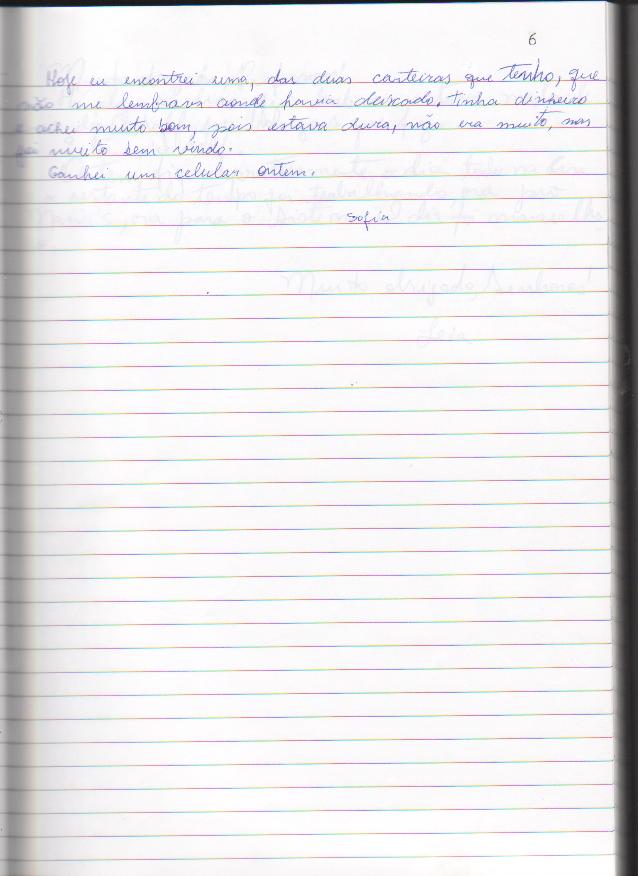 6
Hoje eu encontrei uma, das duas carteiras que tenho, que
não me lembrava aonde havia deixado. Tinha dinheiro
e achei muito bom, pois estava dura, não era muito, mas
foi muito bem vindo.
Ganhei um celular ontem.
Sofia
Muito obrigado, Senhores!